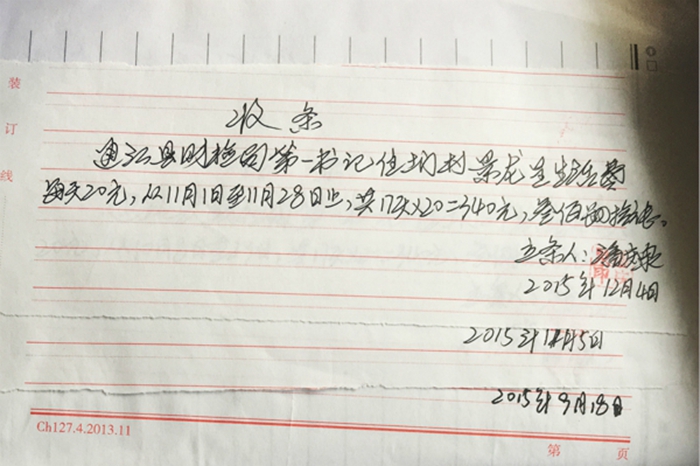 装
订
线
收条
通江县财检局第一书记住村 景龙生生活费
每天20元，从11月1日至11月28日止，共17天×20=340元，叁佰肆拾元。
立条人：
2015年12月4日
2015年11月5日
2015年9月18日
Ch127.4.2013.11
第 页